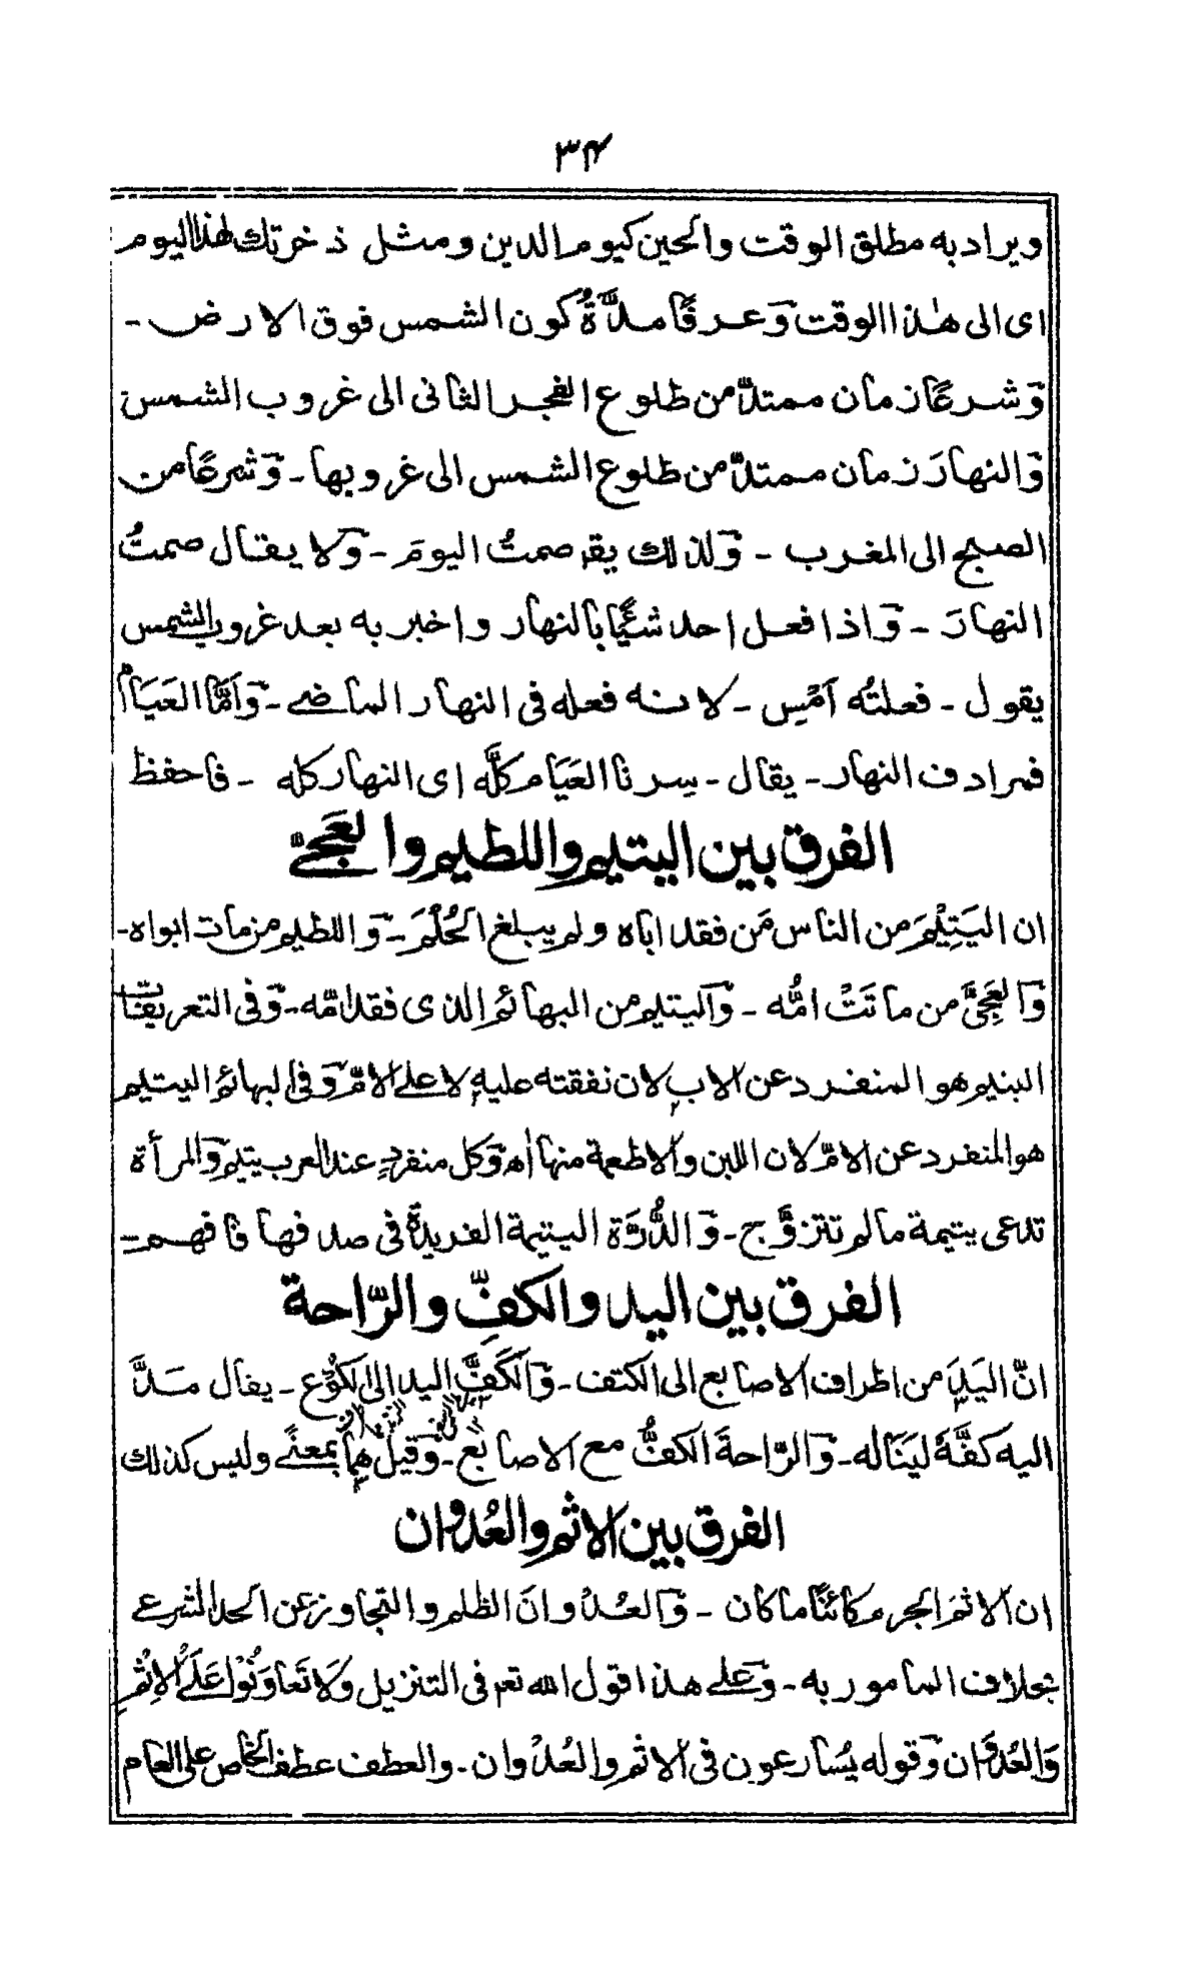 ۳۴
ويراد به مطلق الوقت والحين كيوم الدين ومثل ذخرتك لهذا اليوم
اى الى هٰذا الوقت وَعرفًا مدَّةُ كون الشمس فوق الارض -
وَشرعًا زمان ممتدٌّ من طلوع الفجر الثانى الى غروب الشمس
وَالنهارَ زمان ممتدٌّ من طلوع الشمس الى غروبها - وَشرعًا من
الصبح الى المغرب - وَلذلك يقـ صمتُ اليومَ - وَلا يقال صمتُ
النهارَ - وَاذا فعل احد شئيًا بالنهار واخبر به بعد غروب الشمس
يقول - فعلتُه اَمْسِ - لانه فعله فى النهار الماضے - وَاَمَّا العَيَامُ
فمرادف النهار - يقال - سرنا العَيَام كلَّه اى النهار كله - فاحفظ
الفرق بين اليتيم واللطيم والعَجِیّ
ان اليَتِيْمَ من الناس مَن فقد اباه ولم يبلغ الحُلُمَ - وَاللطيم من مات ابواه -
وَالعَجِىَّ من ماتَتْ امُّه - وَاليتيم من البهائم الذى فقد امّه - وَفى التعريفات
اليتيم هو المنفرد عن الاب لان نفقته عليه لا على الامّ وَفى البهائم اليتيم
هو المنفرد عن الامّ لان اللبن والاطعمة منها اه وَكل منفردٍ عند العرب يتيم وَالمرأة
تدعى يتيمة مالم تتزوَّج - وَالدُّرَّة اليتيمة الفريدة فى صدفها فافهم -
الفرق بين اليد والكفِّ والرّاحة
انّ اليَدَ من اطراف الاصابع الى الكتف - وَالكَفَّ اليد الى الكُوْع - يقال مَدَّ
اليه كفَّهُ لينَاله - وَالرّاحةَ الكفُّ مع الاصابع - وَقيل هما بمعنًے وليس كذلك
الفرق بين الاثم والعُدوان
ان الاثمَ الجرم كائنًا ما كان - وَالعُدْوانَ الظلم والتجاوز عن الحد الشرعے
بخلاف المامور به - وَعلے هذا قول الله تعـ فى التنزيل وَلَا تَعَاوَنُوْا عَلَى الْاِثْمِ
وَالعُدْوَان وَقوله يُسَارعون فى الاثم والعُدْوان - والعطف عطف الخاص على العام